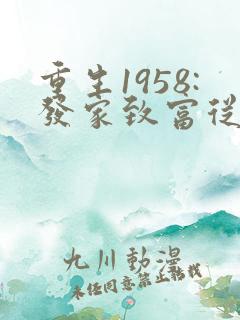 重生1958:
發家致富從
九川動漫
未经同意禁止转载